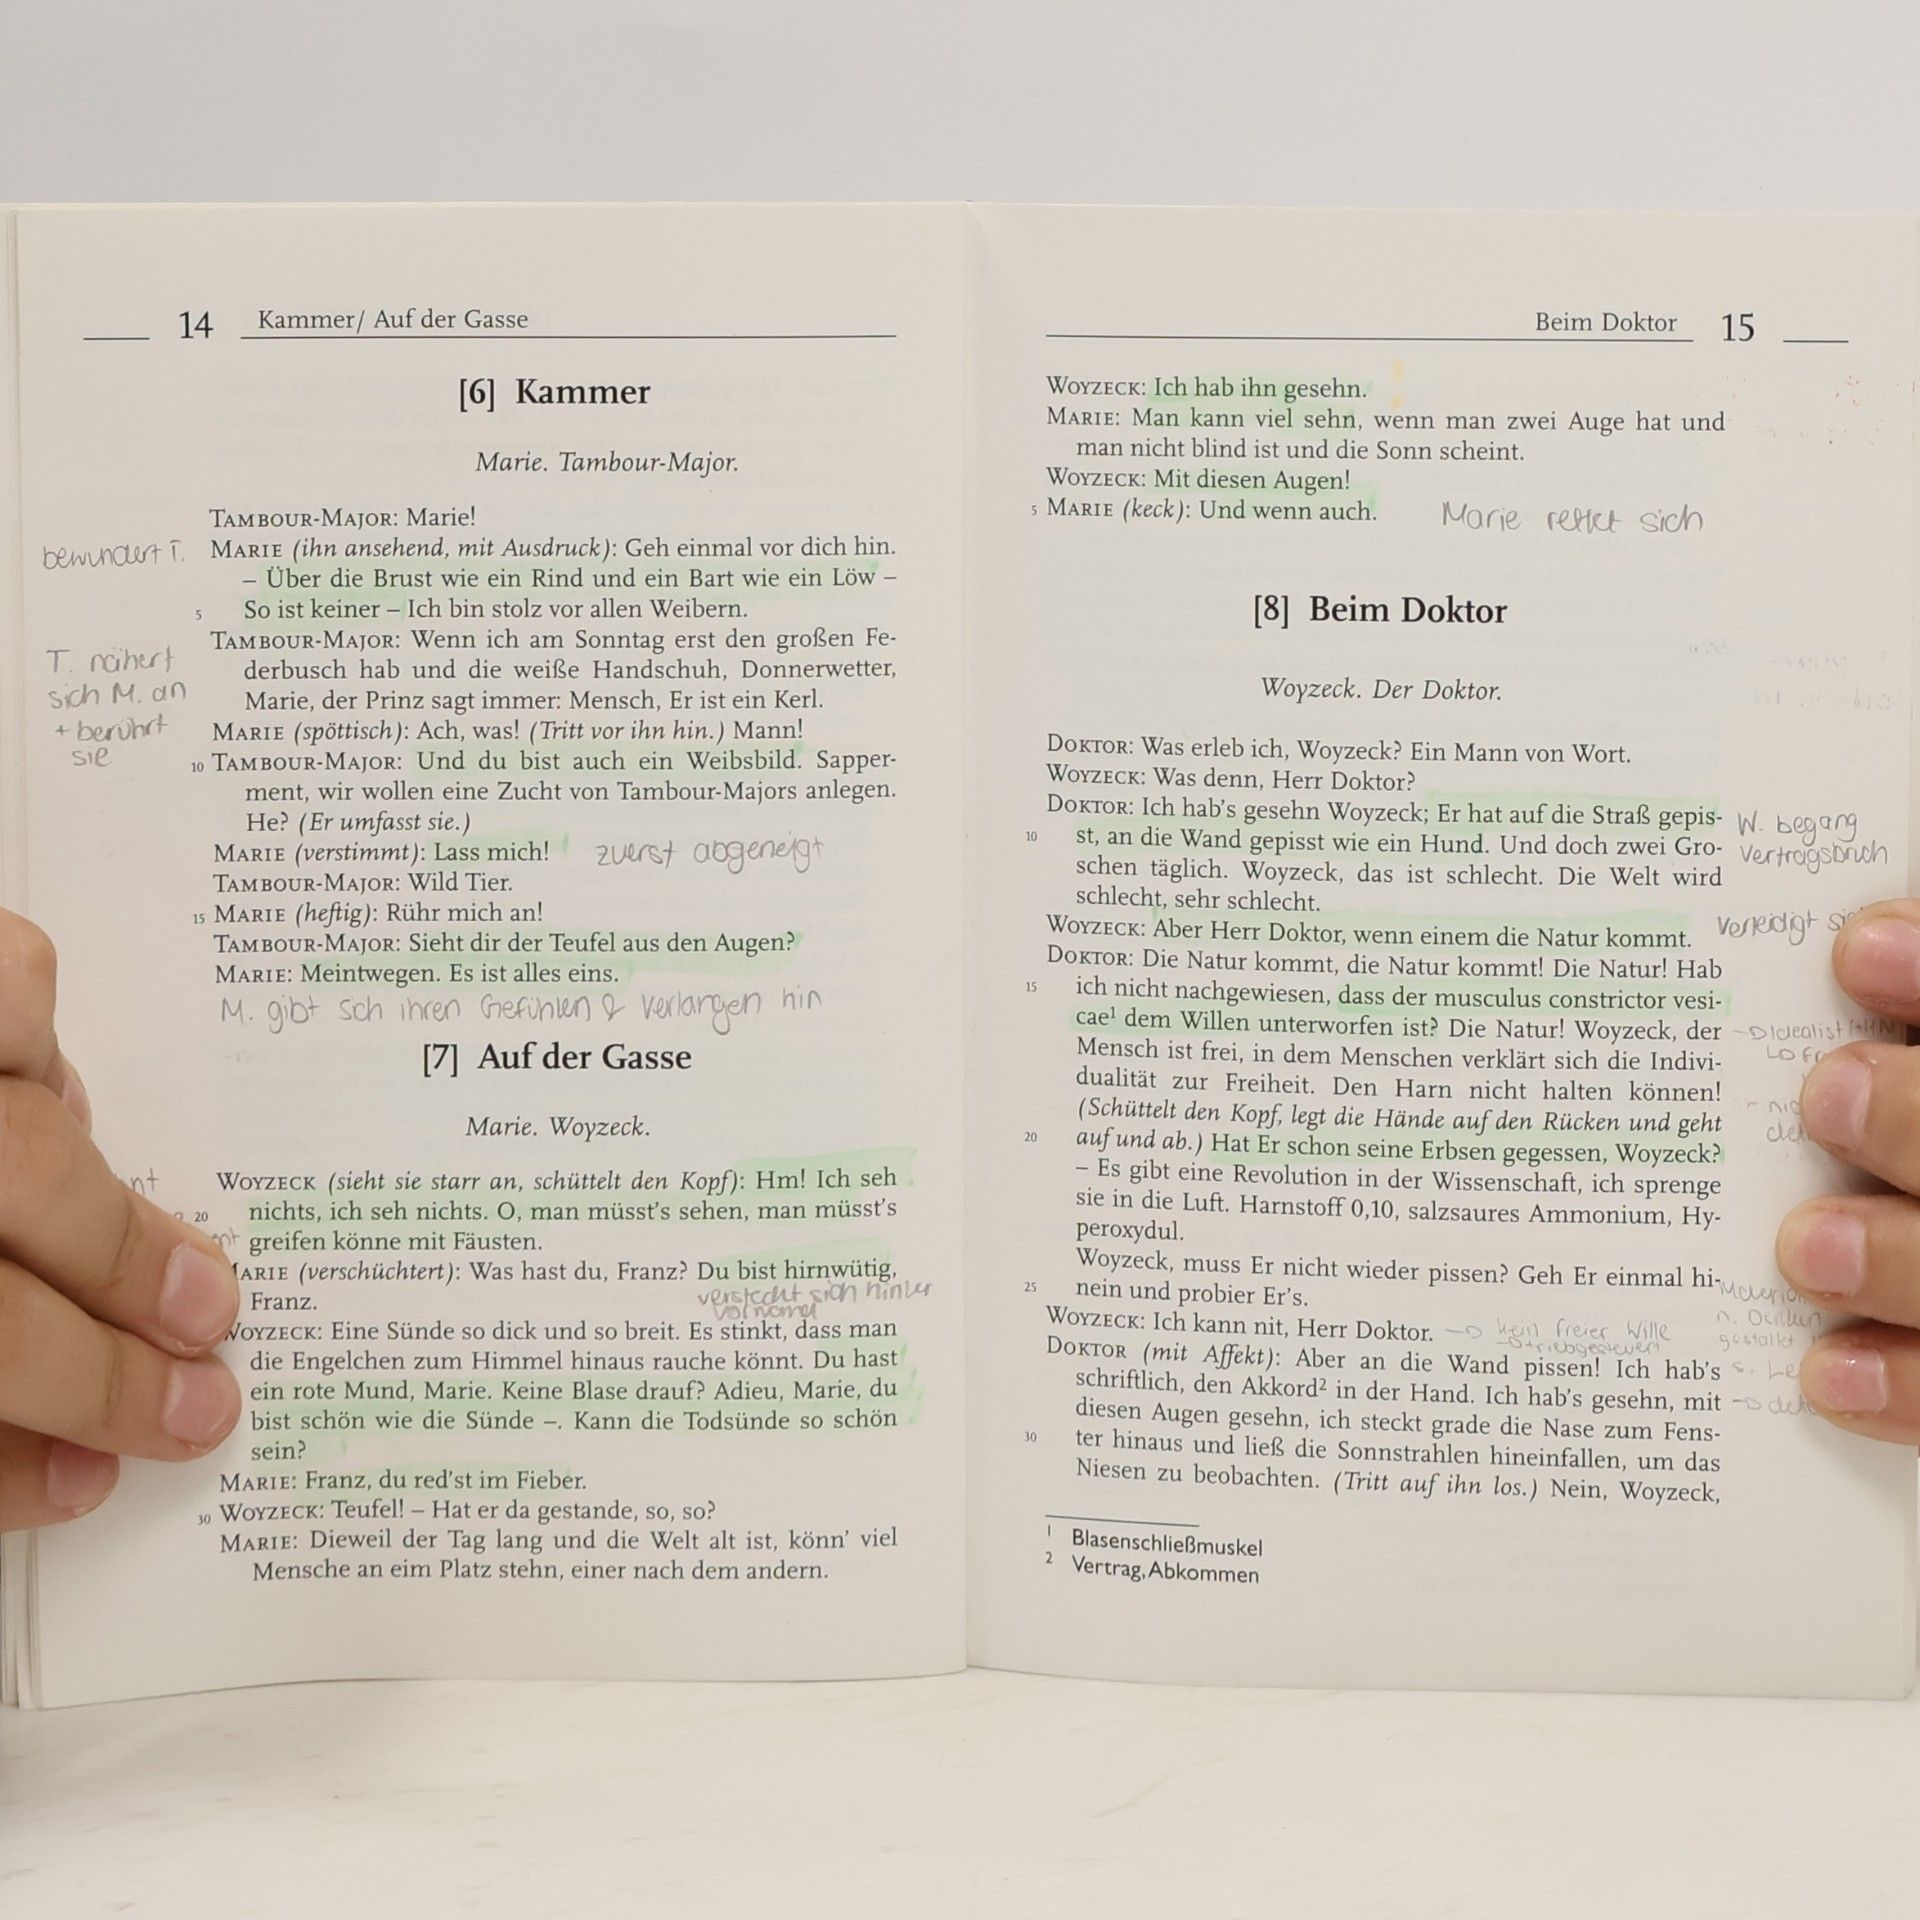 14 Kammer/ Auf der Gasse
[6] Kammer
Marie. Tambour-Major.
TAMBOUR-MAJOR: Marie!
bewundert T.
MARIE (ihn ansehend, mit Ausdruck): Geh einmal vor dich hin.
– Über die Brust wie ein Rind und ein Bart wie ein Löw –
5 So ist keiner – Ich bin stolz vor allen Weibern.
TAMBOUR-MAJOR: Wenn ich am Sonntag erst den großen Fe-
derbusch hab und die weiße Handschuh, Donnerwetter,
Marie, der Prinz sagt immer: Mensch, Er ist ein Kerl.
T. nähert
sich M. an
+ berührt
sie
MARIE (spöttisch): Ach, was! (Tritt vor ihn hin.) Mann!
10 TAMBOUR-MAJOR: Und du bist auch ein Weibsbild. Sapper-
ment, wir wollen eine Zucht von Tambour-Majors anlegen.
He? (Er umfasst sie.)
MARIE (verstimmt): Lass mich! zuerst abgeneigt
TAMBOUR-MAJOR: Wild Tier.
15 MARIE (heftig): Rühr mich an!
TAMBOUR-MAJOR: Sieht dir der Teufel aus den Augen?
MARIE: Meintwegen. Es ist alles eins.
M. gibt sich ihren Gefühlen & Verlangen hin
[7] Auf der Gasse
Marie. Woyzeck.
WOYZECK (sieht sie starr an, schüttelt den Kopf): Hm! Ich seh
20 nichts, ich seh nichts. O, man müsst's sehen, man müsst's
greifen könne mit Fäusten.
MARIE (verschüchtert): Was hast du, Franz? Du bist hirnwütig,
Franz.
versteckt sich hinter
WOYZECK: Eine Sünde so dick und so breit. Es stinkt, dass man
die Engelchen zum Himmel hinaus rauche könnt. Du hast
ein rote Mund, Marie. Keine Blase drauf? Adieu, Marie, du
bist schön wie die Sünde –. Kann die Todsünde so schön
sein?
MARIE: Franz, du red'st im Fieber.
30 WOYZECK: Teufel! – Hat er da gestande, so, so?
MARIE: Dieweil der Tag lang und die Welt alt ist, könn' viel
Mensche an eim Platz stehn, einer nach dem andern.
Beim Doktor 15
WOYZECK: Ich hab ihn gesehn.
MARIE: Man kann viel sehn, wenn man zwei Auge hat und
man nicht blind ist und die Sonn scheint.
WOYZECK: Mit diesen Augen!
5 MARIE (keck): Und wenn auch. Marie rettet sich
[8] Beim Doktor
Woyzeck. Der Doktor.
DOKTOR: Was erleb ich, Woyzeck? Ein Mann von Wort.
WOYZECK: Was denn, Herr Doktor?
DOKTOR: Ich hab's gesehn Woyzeck; Er hat auf die Straß gepis-
10 st, an die Wand gepisst wie ein Hund. Und doch zwei Gro-
schen täglich. Woyzeck, das ist schlecht. Die Welt wird
schlecht, sehr schlecht.
W. begang
Vertragsbruch
WOYZECK: Aber Herr Doktor, wenn einem die Natur kommt.
verteidigt
DOKTOR: Die Natur kommt, die Natur kommt! Die Natur! Hab
15 ich nicht nachgewiesen, dass der musculus constrictor vesi-
cae¹ dem Willen unterworfen ist? Die Natur! Woyzeck, der
Mensch ist frei, in dem Menschen verklärt sich die Indivi-
dualität zur Freiheit. Den Harn nicht halten können!
(Schüttelt den Kopf, legt die Hände auf den Rücken und geht
20 auf und ab.) Hat Er schon seine Erbsen gegessen, Woyzeck?
– Es gibt eine Revolution in der Wissenschaft, ich sprenge
sie in die Luft. Harnstoff 0,10, salzsaures Ammonium, Hy-
peroxydul.
Woyzeck, muss Er nicht wieder pissen? Geh Er einmal hi-
25 nein und probier Er's.
WOYZECK: Ich kann nit, Herr Doktor. kein freier Wille
triebgesteuert
DOKTOR (mit Affekt): Aber an die Wand pissen! Ich hab's
schriftlich, den Akkord² in der Hand. Ich hab's gesehn, mit
diesen Augen gesehn, ich steckt grade die Nase zum Fens-
30 ter hinaus und ließ die Sonnstrahlen hineinfallen, um das
Niesen zu beobachten. (Tritt auf ihn los.) Nein, Woyzeck,
1 Blasenschließmuskel
2 Vertrag, Abkommen